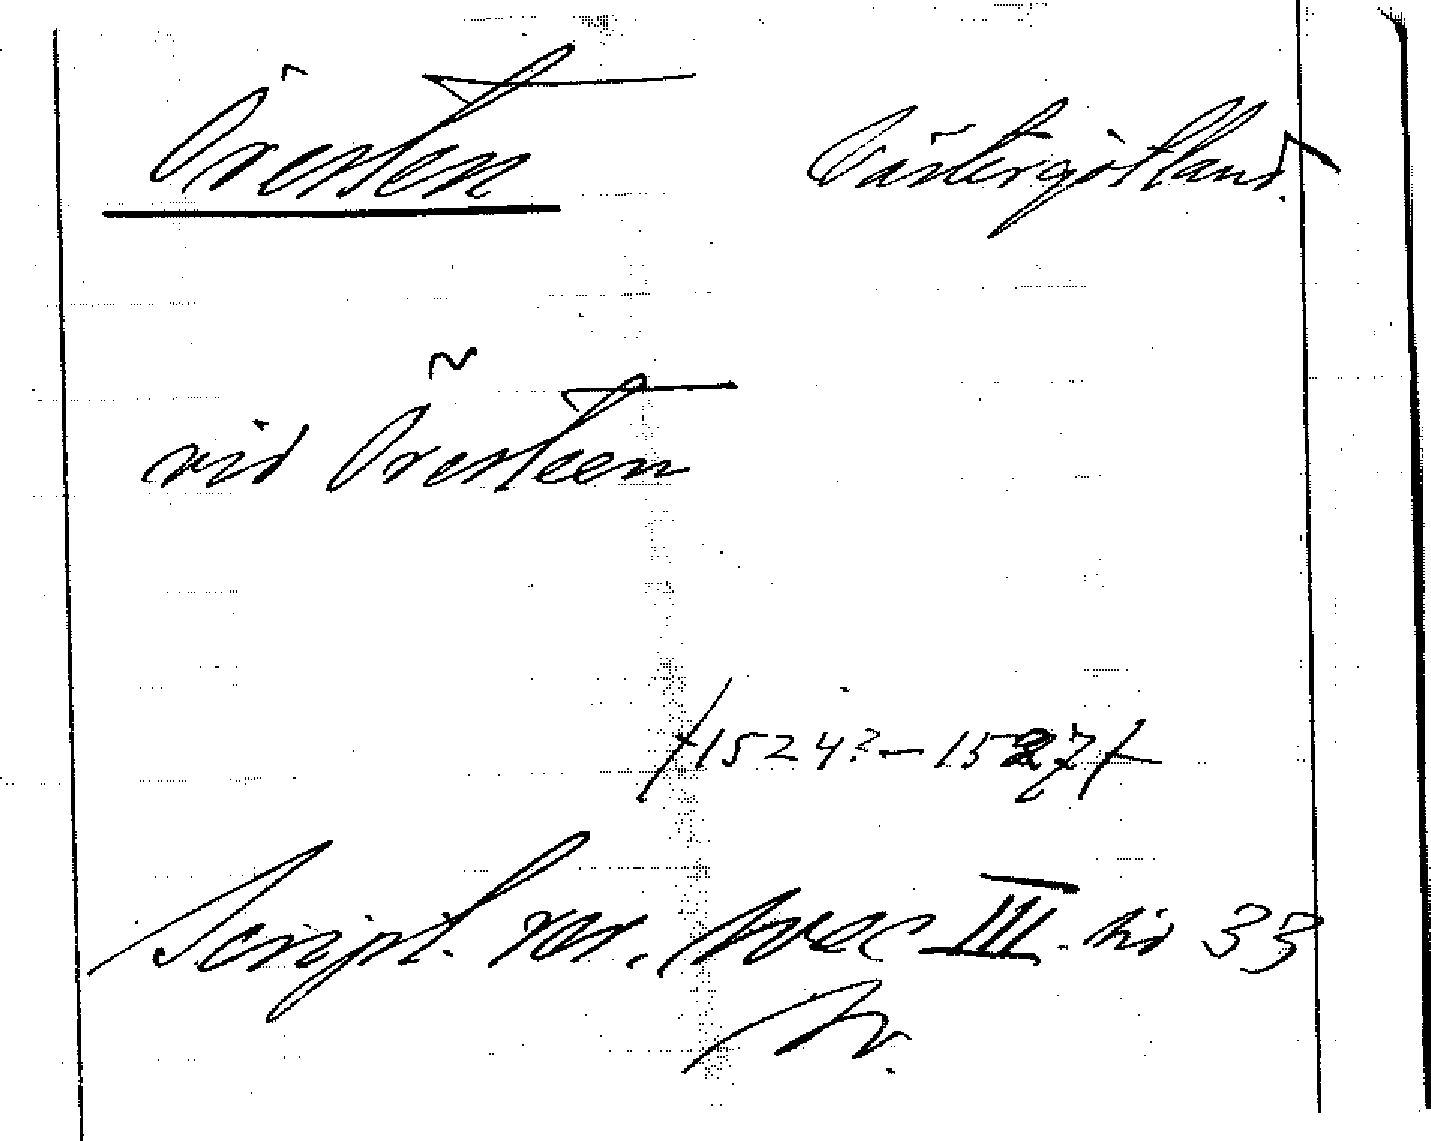 Öresten Västergötland.
vid Öresteen
/1524?—1527/
Script. rer. svec III. hir 33